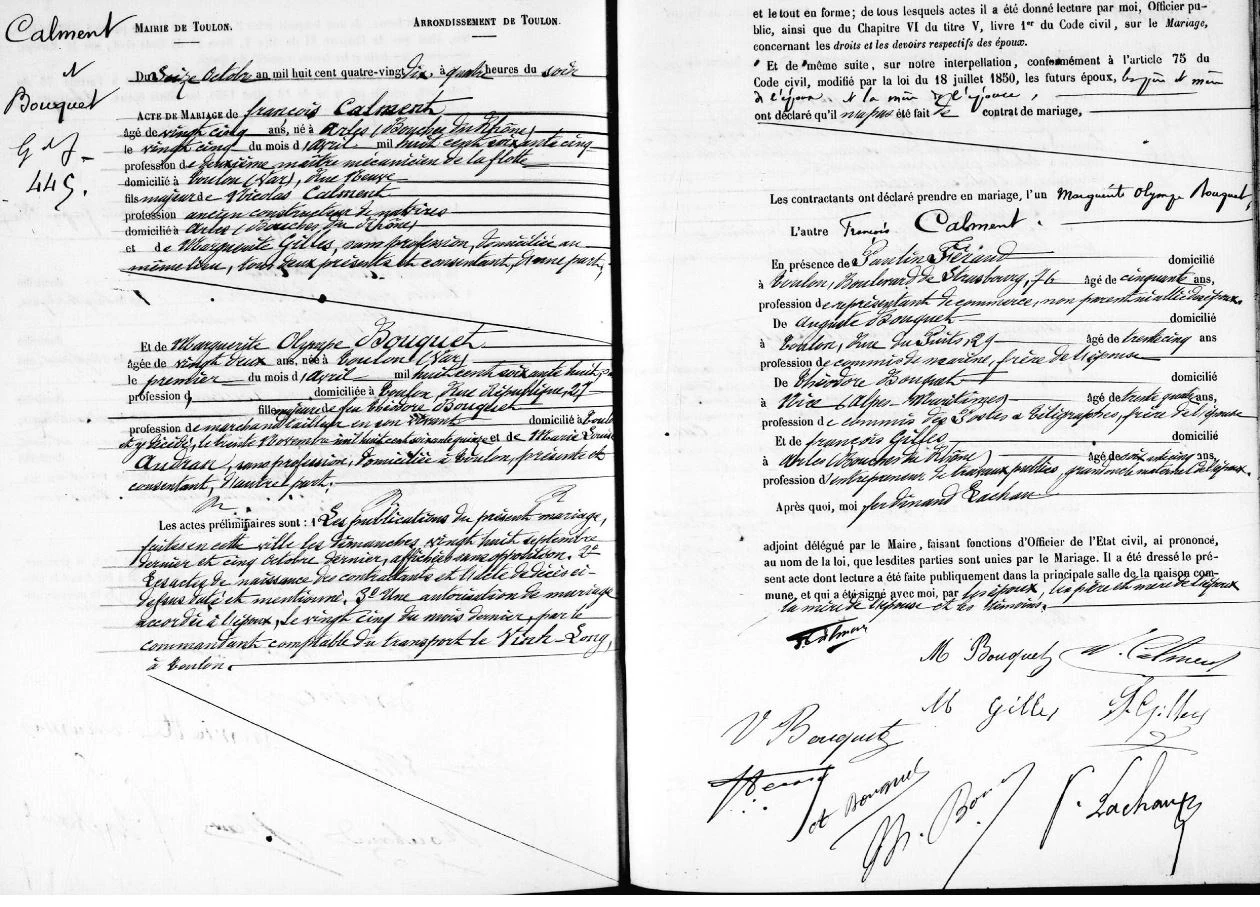 Calment
&
Bouquet
445.
MAIRIE DE TOULON.
ARRONDISSEMENT DE TOULON.
Du Seize Octobre an mil huit cent quatre-vingt dix, à quatre heures du soir
ACTE DE MARIAGE de françois Calment,
âgé de vingt cinq ans, né à Arles (Bouches du Rhône)
le vingt cinq du mois d'avril mil huit cent soixante cinq
profession de deuxième maître mécanicien de la flotte
domicilié à Toulon (Var), Rue Neuve
fils majeur de Nicolas Calment
profession ancien constructeur de navires
domicilié à Arles (Bouches du Rhône)
et de Marguerite Gilles, sans profession, domiciliée au
même lieu, tous deux présents et consentant, d'une part,
Et de Marguerite Olympe Bouquet
âgée de vingt deux ans, née à Toulon (Var)
le premier du mois d'avril mil huit cent soixante huit
profession domiciliée à Toulon, Rue République, 27
fille majeure de feu Théodore Bouquet
profession de marchand tailleur en son vivant domicilié à Toulon
et y décédé, le trente Novembre mil huit cent soixante quinze et de Marie Louise
Andrau, sans profession, domiciliée à Toulon, présente et
consentant, d'autre part.
Les actes préliminaires sont : 1° Les publications du présent mariage,
faites en cette ville les dimanches, vingt huit septembre
dernier et cinq octobre dernier, affichées sans opposition. 2°
Les actes de naissance des contractants et l'acte de décès ci-
dessus daté et mentionné. 3° Une autorisation de mariage
accordée à l'époux, le vingt cinq du mois dernier, par le
commandant comptable du transport le Vinh-Long,
à Toulon.
et le tout en forme ; de tous lesquels actes il a été donné lecture par moi, Officier pu-
blic, ainsi que du Chapitre VI du titre V, livre 1er du Code civil, sur le Mariage,
concernant les droits et les devoirs respectifs des époux.
Et de même suite, sur notre interpellation, conformément à l'article 75 du
Code civil, modifié par la loi du 18 juillet 1850, les futurs époux, les père et mère
de l'époux et la mère de l'épouse,
ont déclaré qu'il n'a pas été fait de contrat de mariage,
Les contractants ont déclaré prendre en mariage, l'un Marguerite Olympe Bouquet,
L'autre François Calment.
En présence de Paulin Féraud domicilié
à Toulon, Boulevard de Strasbourg, 76 âgé de cinquante ans,
profession de représentant de commerce, non parent ni allié des époux.
De Auguste Bouquet domicilié
à Toulon, Rue du Puits, 29 âgé de trente cinq ans
profession de commis de marine, frère de l'épouse
De Théodore Bouquet domicilié
à Nice (Alpes-Maritimes) âgé de trente quatre ans,
profession de commis des Postes & Télégraphes, frère de l'épouse
Et de françois Gilles, domicilié
à Arles (Bouches du Rhône) âgé de ans,
profession d'entrepreneur de travaux publics, grand oncle maternel de l'époux.
Après quoi, moi ferdinand Lachau
adjoint délégué par le Maire, faisant fonctions d'Officier de l'Etat civil, ai prononcé,
au nom de la loi, que lesdites parties sont unies par le Mariage. Il a été dressé le pré-
sent acte dont lecture a été faite publiquement dans la principale salle de la maison com-
mune, et qui a été signé avec moi, par les époux, les père et mère de l'époux
la mère de l'épouse et les témoins.
F. Calment
M Bouquet
N. Calment
M Gilles
F. Gilles
V Bouquet
et Bouquet
F. Lachau